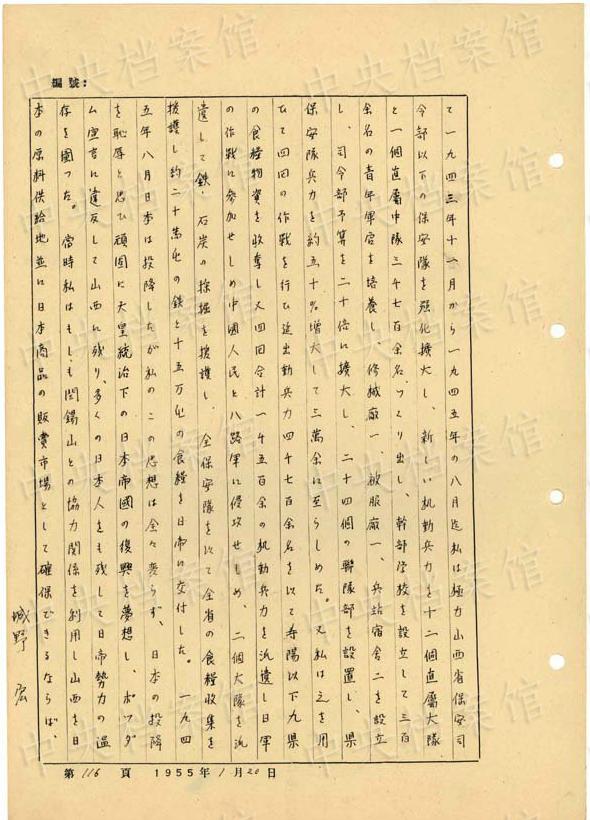 編號:
て一九四三年十一月から一九四五年の八月迄私は極力山西省保安司
令部以下の保安隊を强化擴大し、新しい机動兵力を十二個直屬大隊
と一個直屬中隊三千七百余名、つくり出し、幹部学校を設立して三百
余名の青年軍官を培養し、修械廠一、被服廠一、兵站宿舎二を設立
し、司令部予算を二十倍に擴大し、二十四個の聯隊部を設置し、県
保安隊兵力を約五十%増大して三萬余に至らしめた。又私は之を用
ひて四回の作戰を行ひ延出動兵力四千七百余名を以て寿陽以下九県
の食糧物資を收奪し又四回合計一千五百余の机動兵力を派遣し日軍
の作戰に参加せしめ中國人民と八路軍に侵攻せしめ、二個大隊を派
遣して鉄、石炭の採掘を援護し、全保安隊を以て全省の食糧收集を
援護し約二十萬屯の鉄と十五万屯の食糧を日帝に交付した。一九四
五年八月日本は投降したが私のこの思想は全々変らず、日本の投降
を恥辱と思ひ頑固に天皇統治下の日本帝國の復興を夢想し、ポツダ
ム宣言に違反して山西に残り、多くの日本人をも残して日帝勢力の温
存を圖つた。當時私はもしも閻錫山との協力関係を利用し山西を日
本の原料供給地並に日本商品の販賣市場として確保できるならば、
城野 宏
第 116 頁 1955年 1月 20日
中央档案馆